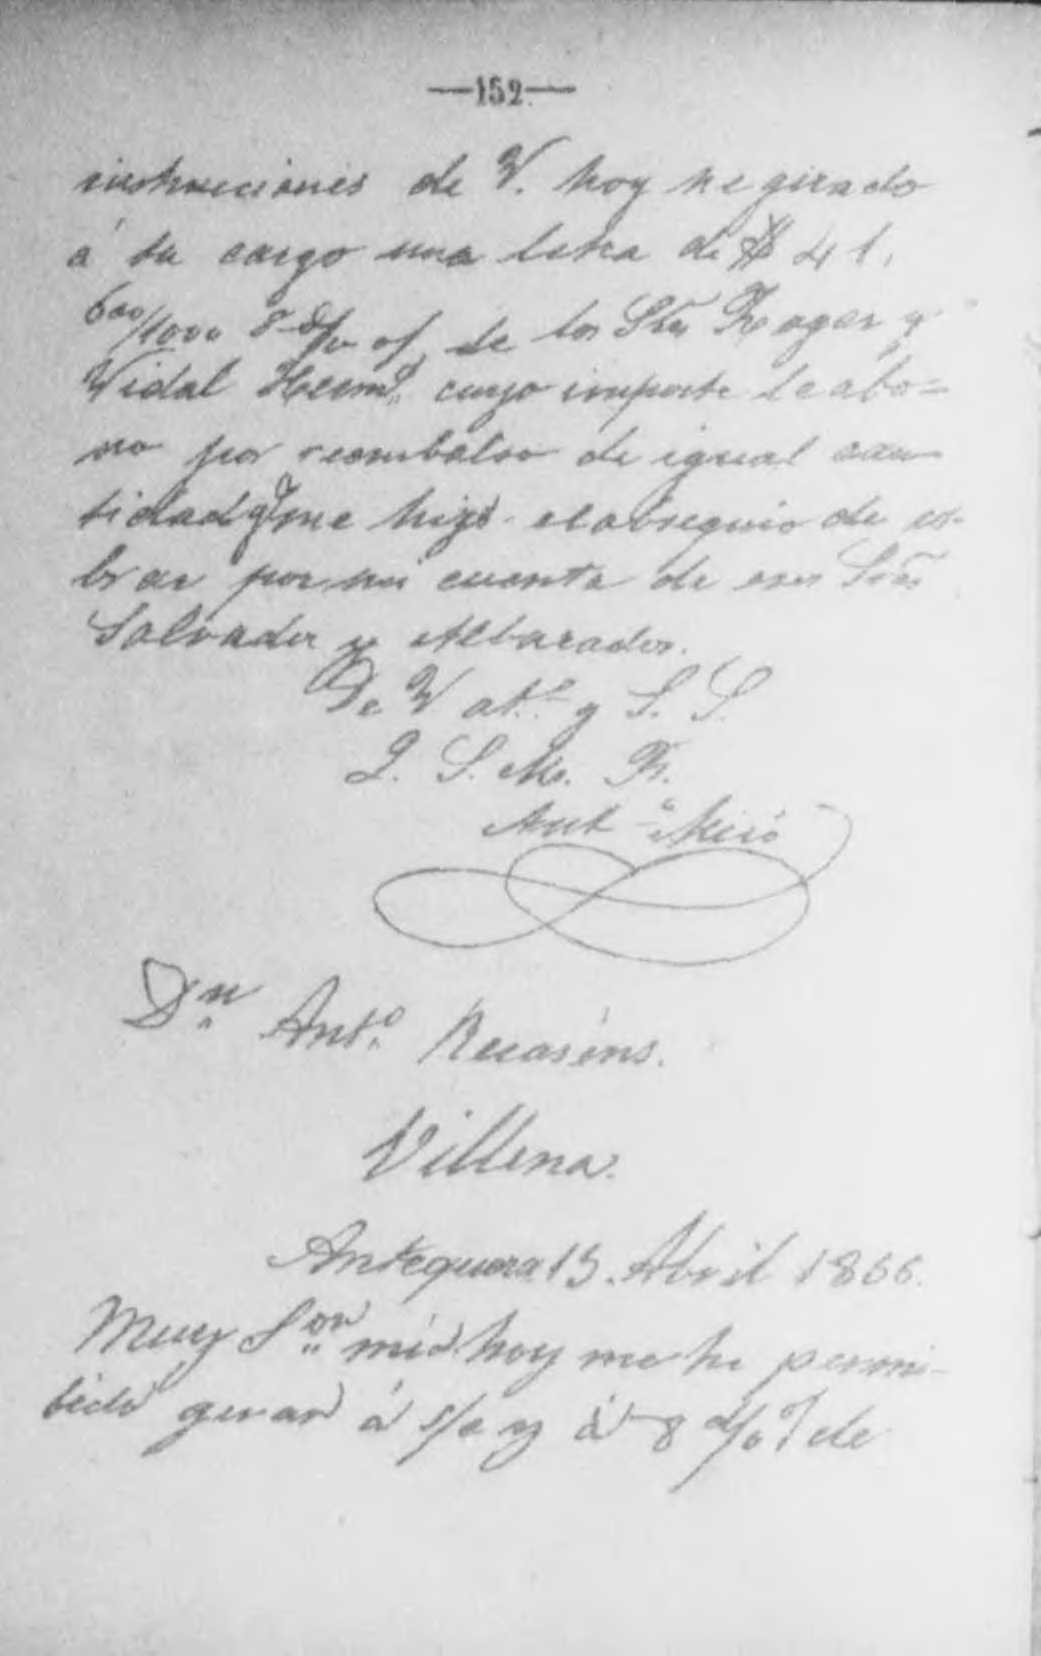 —152—
instrucciones de V. hoy he girado
á su cargo una letra de $ 41.
600/1000 8 d/v o/ de los Sres Roger y
Vidal Herms. cuyo importe le abo=
no por reembolso de igual can
tidad q me hizo el obsequio de co-
brar por mi cuenta de esos Sres
Salvador y Albarados.
De V at.o y S. S.
Q. S. M. B.
Ant.o Miró
Dn Ant.o Recaséns.
Villena.
Antequera 15 Abril 1866.
Muy Sor mio hoy me he permi-
tido girar á s/c y á 8 d/v de